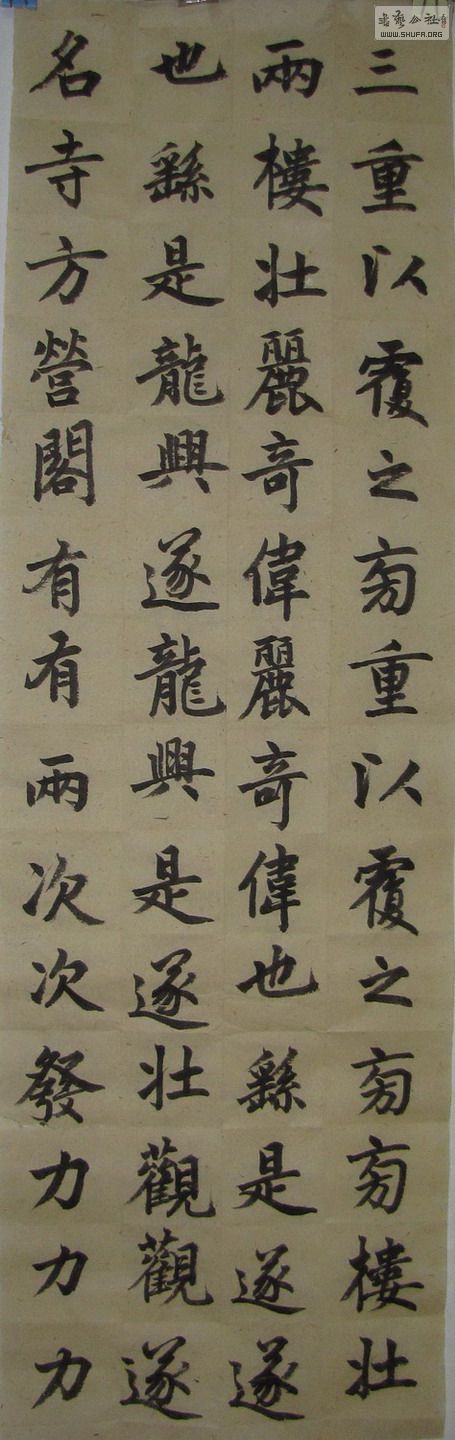 三重以覆之旁重以覆之旁旁樓壯
兩樓壯麗奇偉麗奇偉也繇是遂遂
也繇是龍興遂龍興是遂壯觀觀遂
名寺方營閣有有兩次次發力力力
WWW.SHUFA.ORG